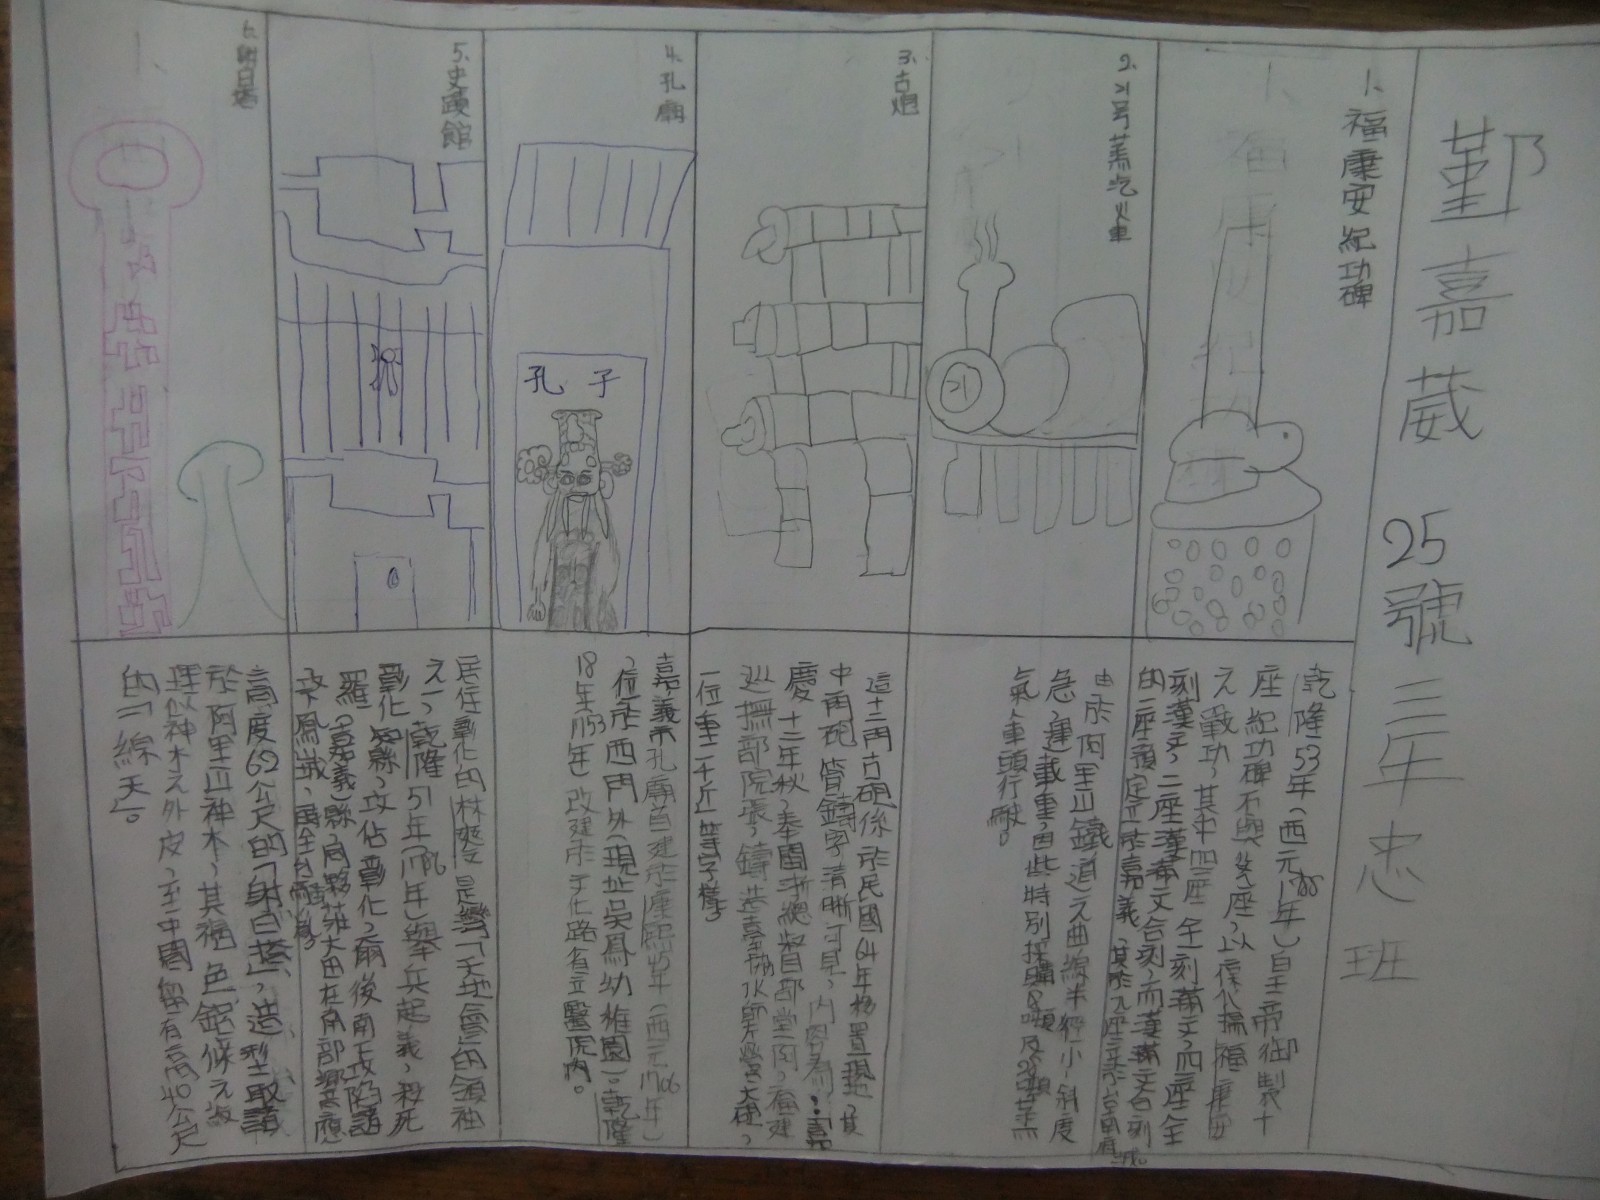 鄞嘉葳 25號三年忠班
1、福康安紀功碑
乾隆53年(西元1788年)皇帝御製十
座紀功碑不與焂座,以保揚福康安
之戰功,其中四座全刻滿文,四座全
刻漢文,二座漢滿文合刻,而漢滿文合刻
的一座預定立於嘉義,其於九座立於台南府城。
2、21号蒸汽火車
由於阿里山鐵道之曲線半徑小、斜度
急、運載重,由此特別採購8噸及28噸蒸
氣車頭行駛。
3、古炮
這十二門古砲係於民國64年移置現地,其
中兩砲管鑄字清晰可見,內容為:「嘉
慶十二年秋,奉閩浙總督部堂阿,福建
巡撫部院張,鑄造臺協水師營大砲,
一位重二千近」等字樣
4、孔廟
孔子
嘉義市孔廟首建於康熙45年(西元1706年)
,位於西門外(現址吳鳳幼稚園)。乾隆
18年(1753年)改建於于化路省立醫院內。
5、史蹟館
居住彰化的林爽文是灣「天地會」的領袖
之一,乾隆51年(1786年)舉兵起義,殺死
彰化知縣,攻佔彰化,爾後南攻陷諸
羅,嘉義縣向夥莊大田在南部響應
攻下鳳城,與全台
6、射日塔
高度62公尺的「射日塔」,造型取諸
於阿里山神木,其褐色鋁條之紋
理以神木之外皮,至中間留有高40公尺
的「一線天」。